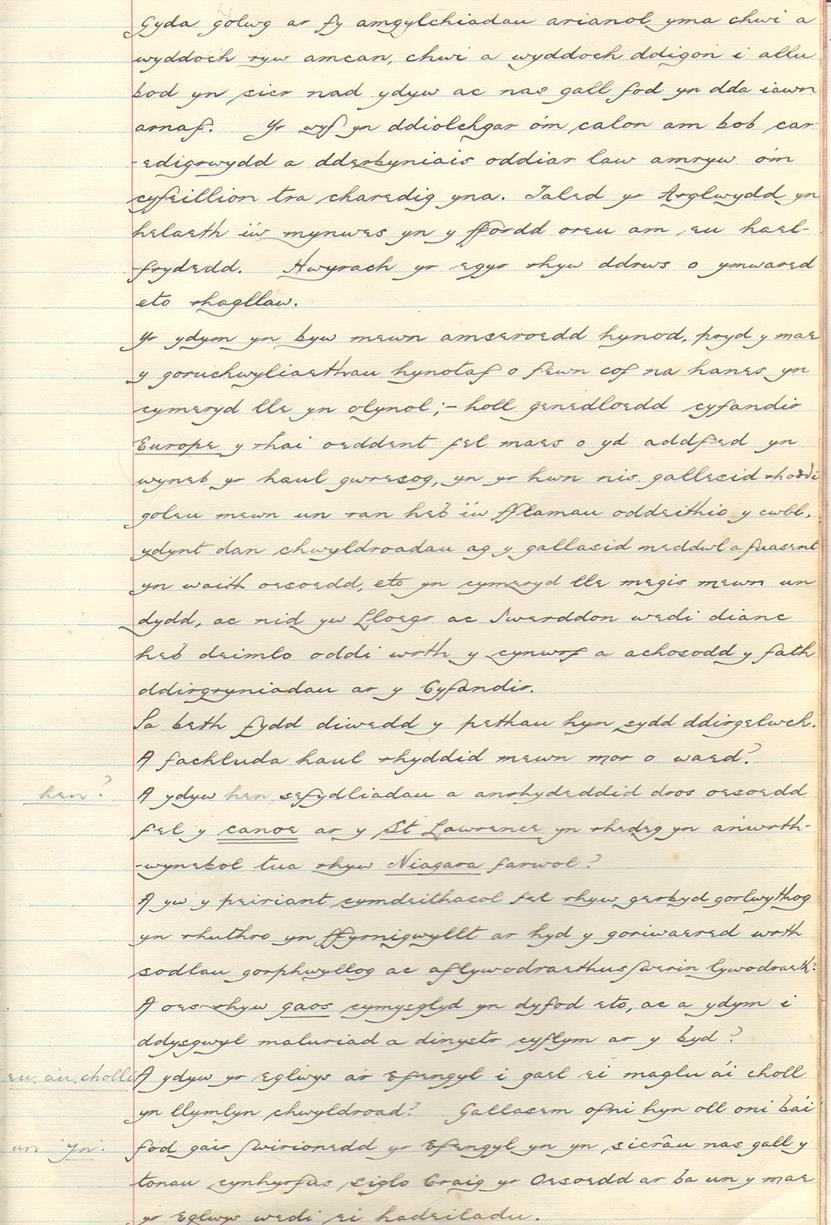 Gyda golwg ar fy amgylchiadau arianol yma chwi a
wyddoch ryw amcan, chwi a wyddoch ddigon i allu
bod yn sicr nad ydyw ac nas gall fod yn dda iawn
arnaf. Yr wyf yn ddiolchgar o'm calon am bob car-
-edigrwydd a dderbyniais oddiar law amryw o'm
cyfeillion tra charedig yna. Taled yr Arglwydd yn
helaeth i'w mynwes yn y ffordd oreu am eu hael-
-frydedd. Hwyrach yr egyr rhyw ddrws o ymwared
eto rhagllaw.
Yr ydym yn byw mewn amseroedd hynod, pryd y mae
y goruchwyliaethau hynotaf o fewn cof na hanes yn
cymeryd lle yn olynol;- holl genedloedd cyfandir
Europe y rhai oeddent fel maes o yd addfed yn
wyneb yr haul gwresog, yn yr hwn nis gallesid rhoddi
goleu mewn un ran heb i'w fflamau oddeithio y cwbl,
ydynt dan chwyldroadau ag y gallasid meddwl a fuasent
yn waith oesoedd, eto yn cymeryd lle megis mewn un
dydd, ac nid yw Lloegr ac Iwerddon wedi dianc
heb deimlo oddi wrth y cynwrf a achosodd y fath
ddirgryniadau ar y Cyfandir.
Pa beth fydd diwedd y pethau hyn sydd ddirgelwch.
A fachluda haul rhyddid mewn mor o waed?
hen? A ydyw hen sefydliadau a anrhydeddid dros oesoedd
fel y canoe ar y St Lawrence yn rhedeg yn anwrth-
-wynebol tua rhyw Niagara farwol?
A yw y peiriant cymdeithasol fel rhyw gerbyd gorlwythog
yn rhuthro yn ffyrnigwyllt ar hyd y goriwaered wrth
sodlau gorphwyllog ac aflywodraethus werin lywodraeth?
A oes rhyw gaos cymysglyd yn dyfod eto, ac a ydym i
ddysgwyl maluriad a dinystr cyflym ar y byd?
eu, a'u, cholli A ydyw yr Eglwys a'r Efengyl i gael ei maglu a'i choll
yn llymlyn chwyldroad? Gallasem ofni hyn oll oni ba'i
un 'yn'. fod gair Wirionedd yr Efengyl yn yn, sicrâu nas gall y
tonau cynhyrfus siglo Craig yr Oesoedd ar ba un y mae
yr Eglwys wedi ei hadeiladu.